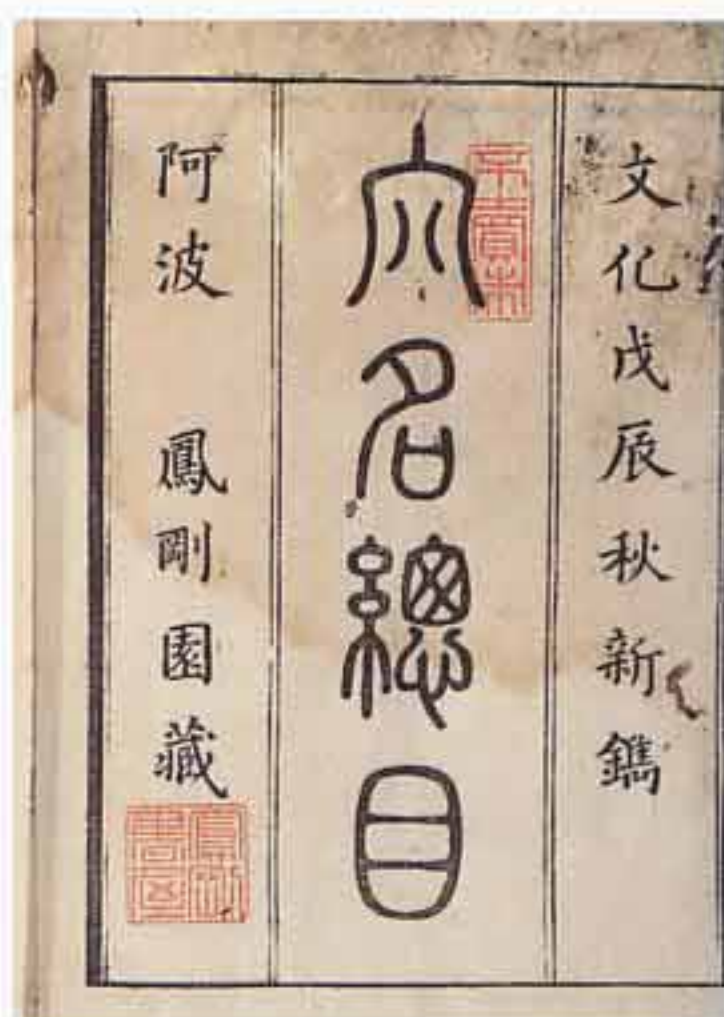 文化戊辰秋新鐫
穴名總目
阿波 鳳剛園藏